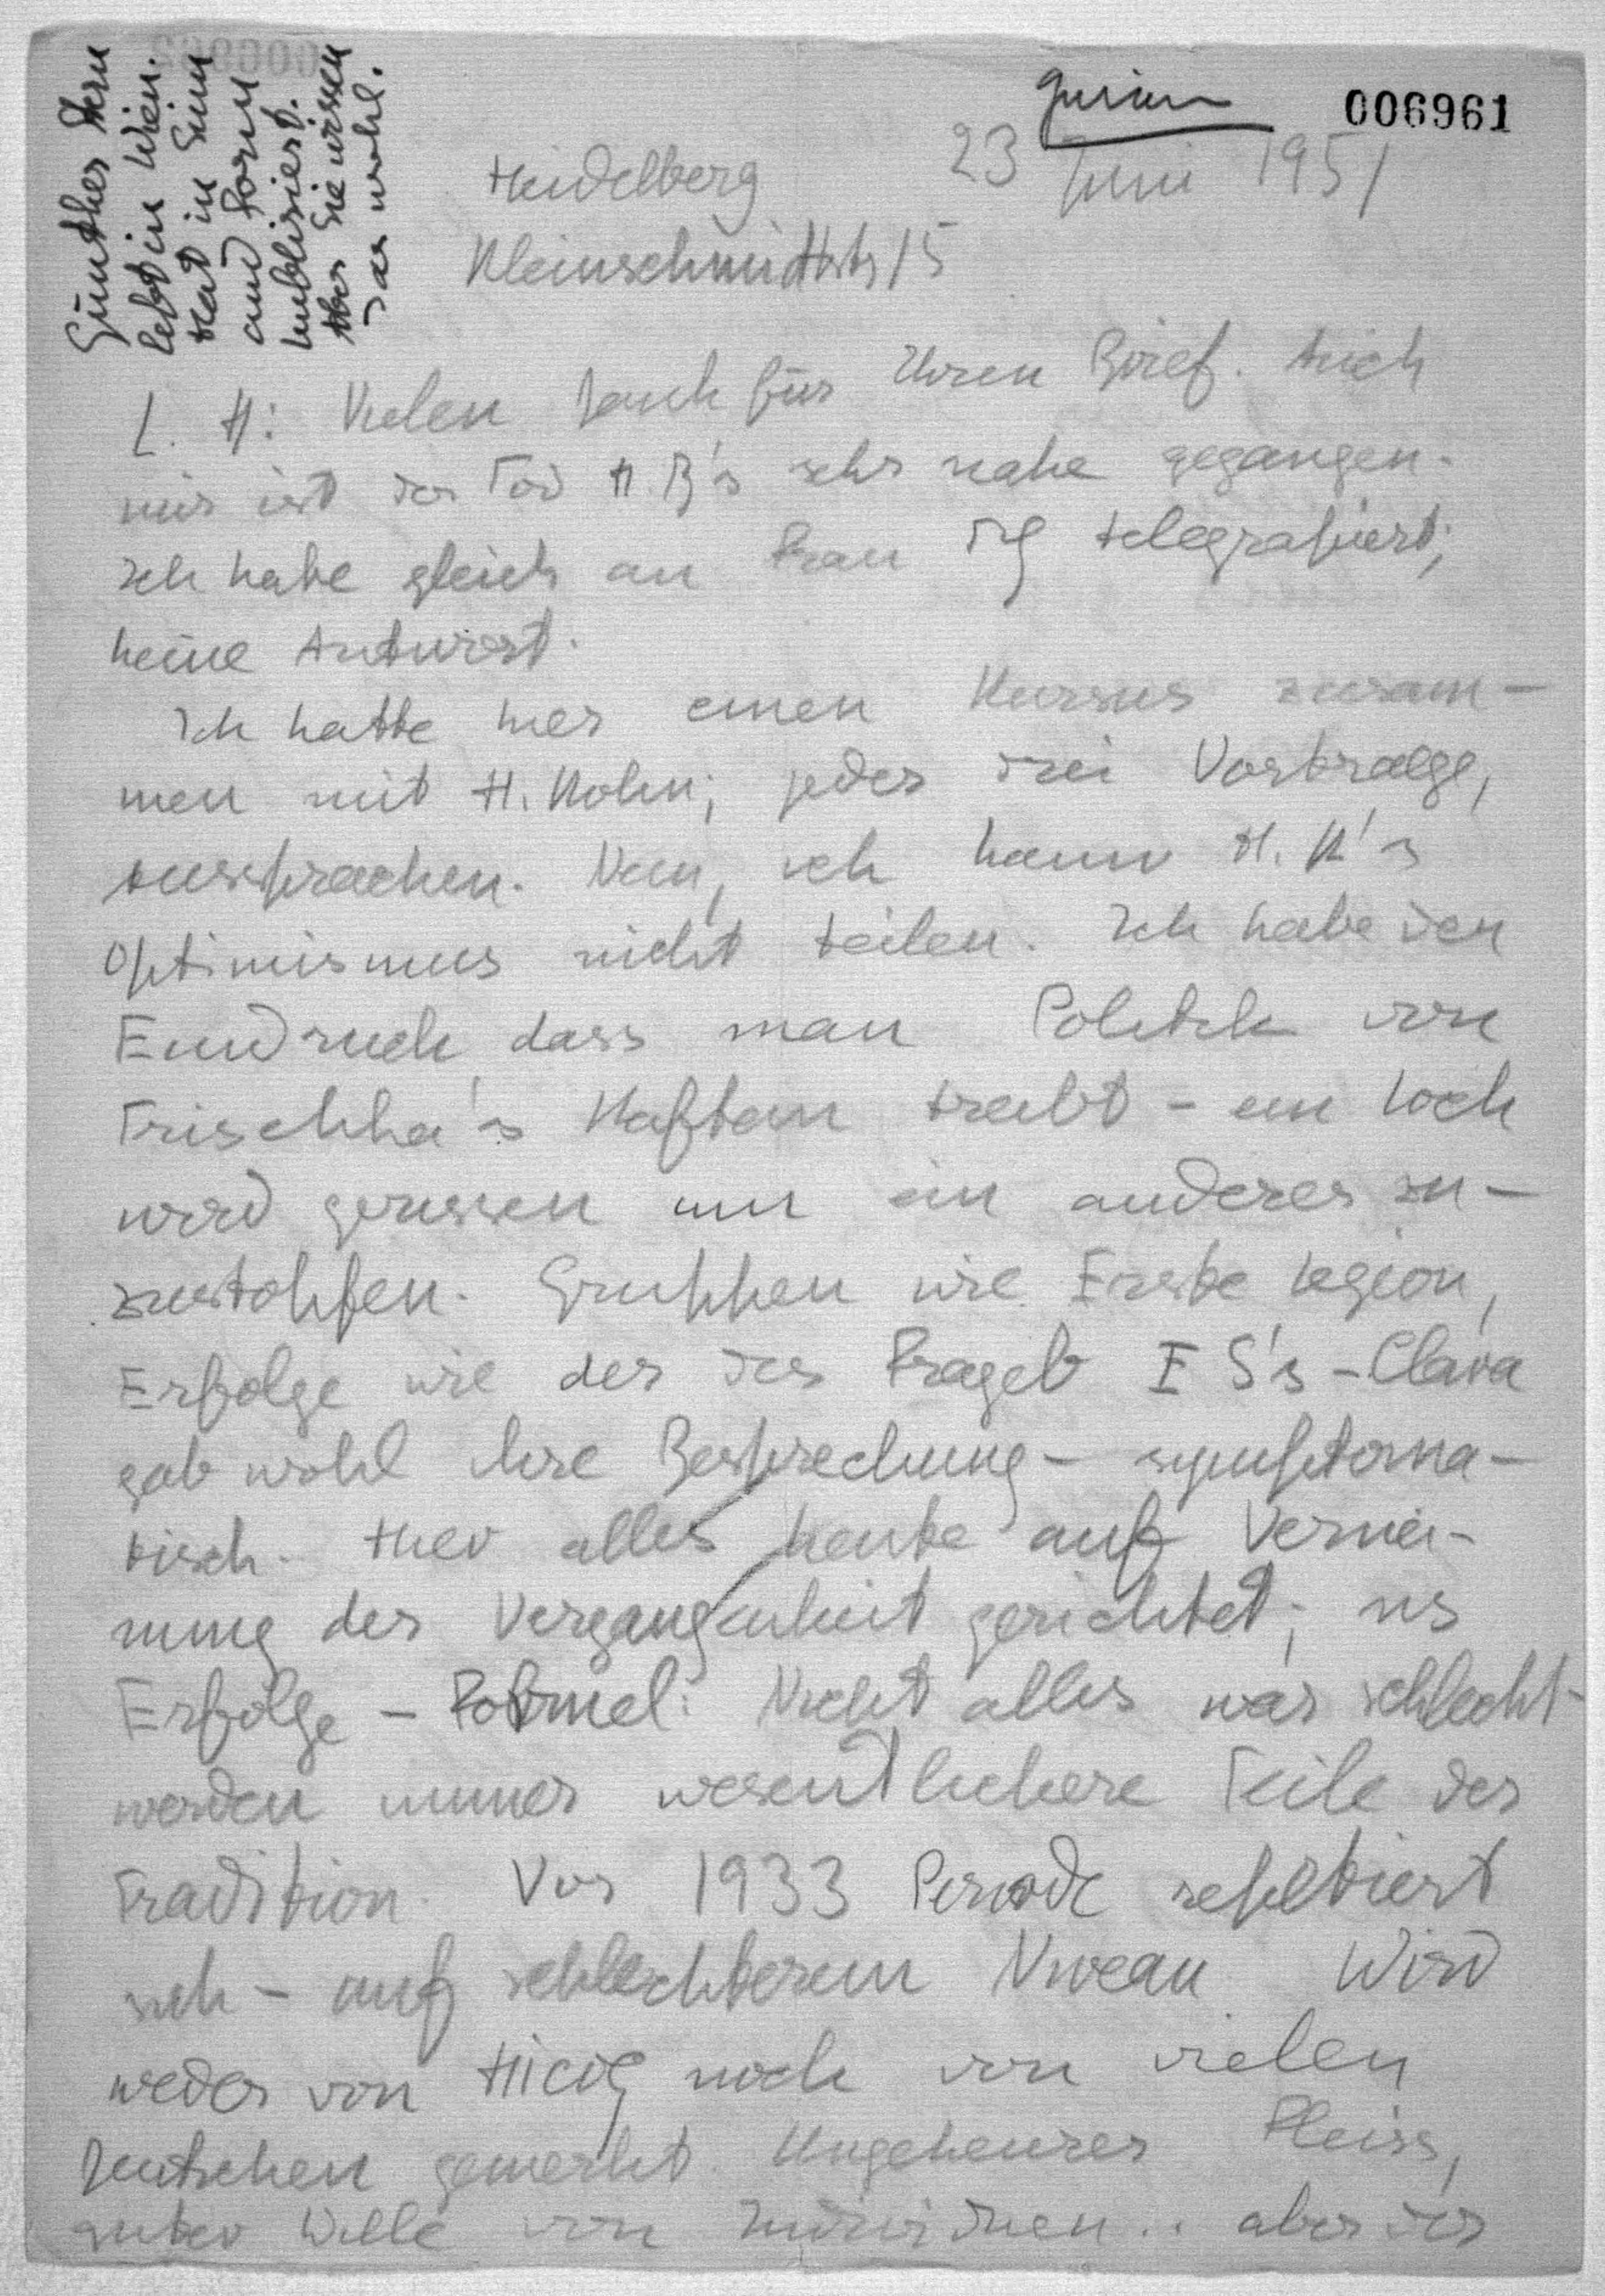 Gurian
006961
Günther Stern
lebt in Wien.
Hat in Sinn
und Form
publiziert.
Aber Sie wissen
das wohl.
Heidelberg 23 Juni 1951
Kleinschmidtstr 15
L. H: Vielen Dank für Ihren Brief. Auch
mir ist der Tod H. B's sehr nahe gegangen.
Ich habe gleich an Frau telegrafiert;
keine Antwort.
Ich hatte hier einen Kursus zusam-
men mit H. Kohn; jeder drei Vortraege,
Aussprachen. Nun, ich kann H. K's
Optimismus nicht teilen. Ich habe den
Eindruck dass man Politik von
Frischka's Kaftan treibt - ein Loch
wird gerissen um ein anderes zu-
zustopfen. Gruppen wie Erste Legion,
Erfolge wie der des Frageb E S's - Clara
gab wohl ihre Besprechung - symptoma-
tisch. Hier alles heute auf Vernei-
nung der Vergangenheit gerichtet; ns
Erfolge - Formel: Nicht alles war schlecht -
werden immer wesentlichere Teile der
Tradition. Vor 1933 Periode repetiert
sich - auf schlechterem Niveau. Wird
weder von Hicog noch von vielen
Deutschen gemerkt. Ungeheurer Fleiss,
guter Wille von Individuen .. aber der